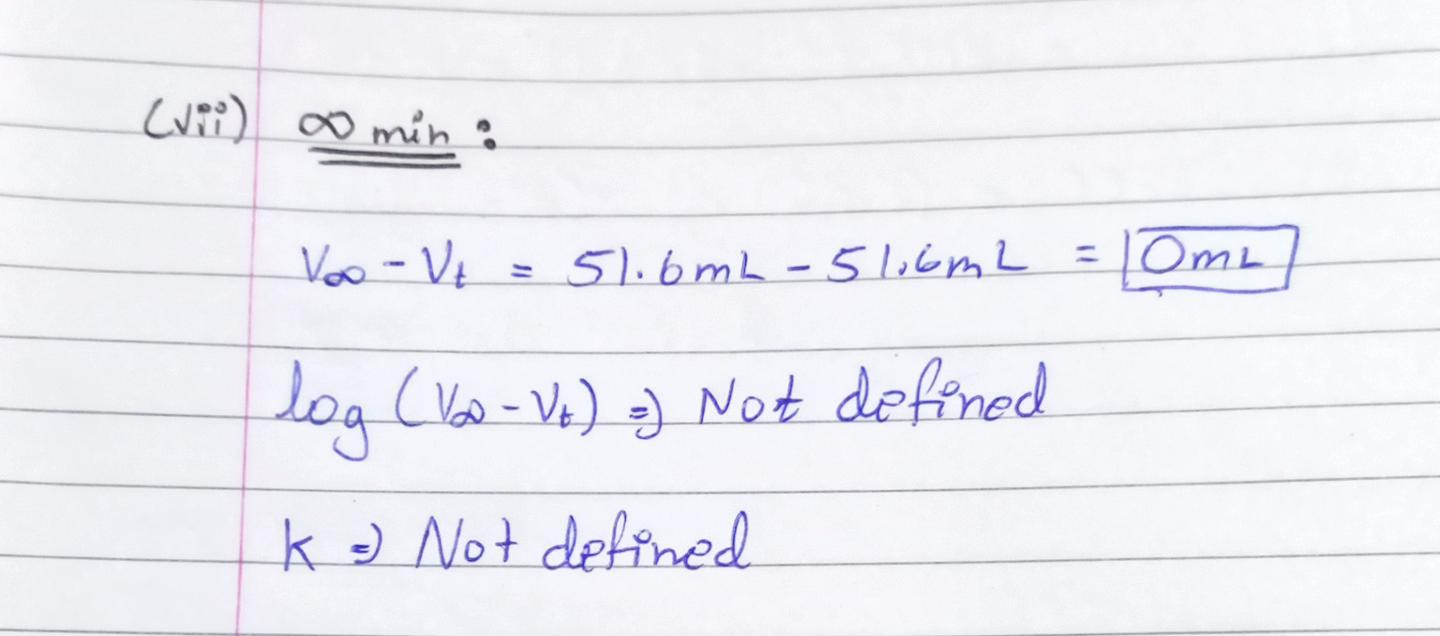 (vii) ∞ min :
V∞ - Vt = 51.6mL - 51.6mL = 0mL
log (V∞ - Vt) => Not defined
k => Not defined